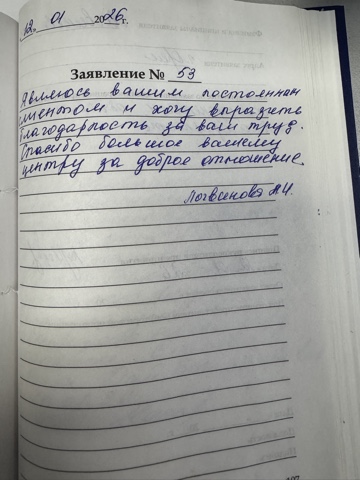 12. 01 2026г.
Заявление № 53
Являюсь вашим постоянным
клиентом и хочу выразить
благодарность за ваш труд.
Спасибо большое вашему
центру за доброе отношение.
Логвинова Н.И.